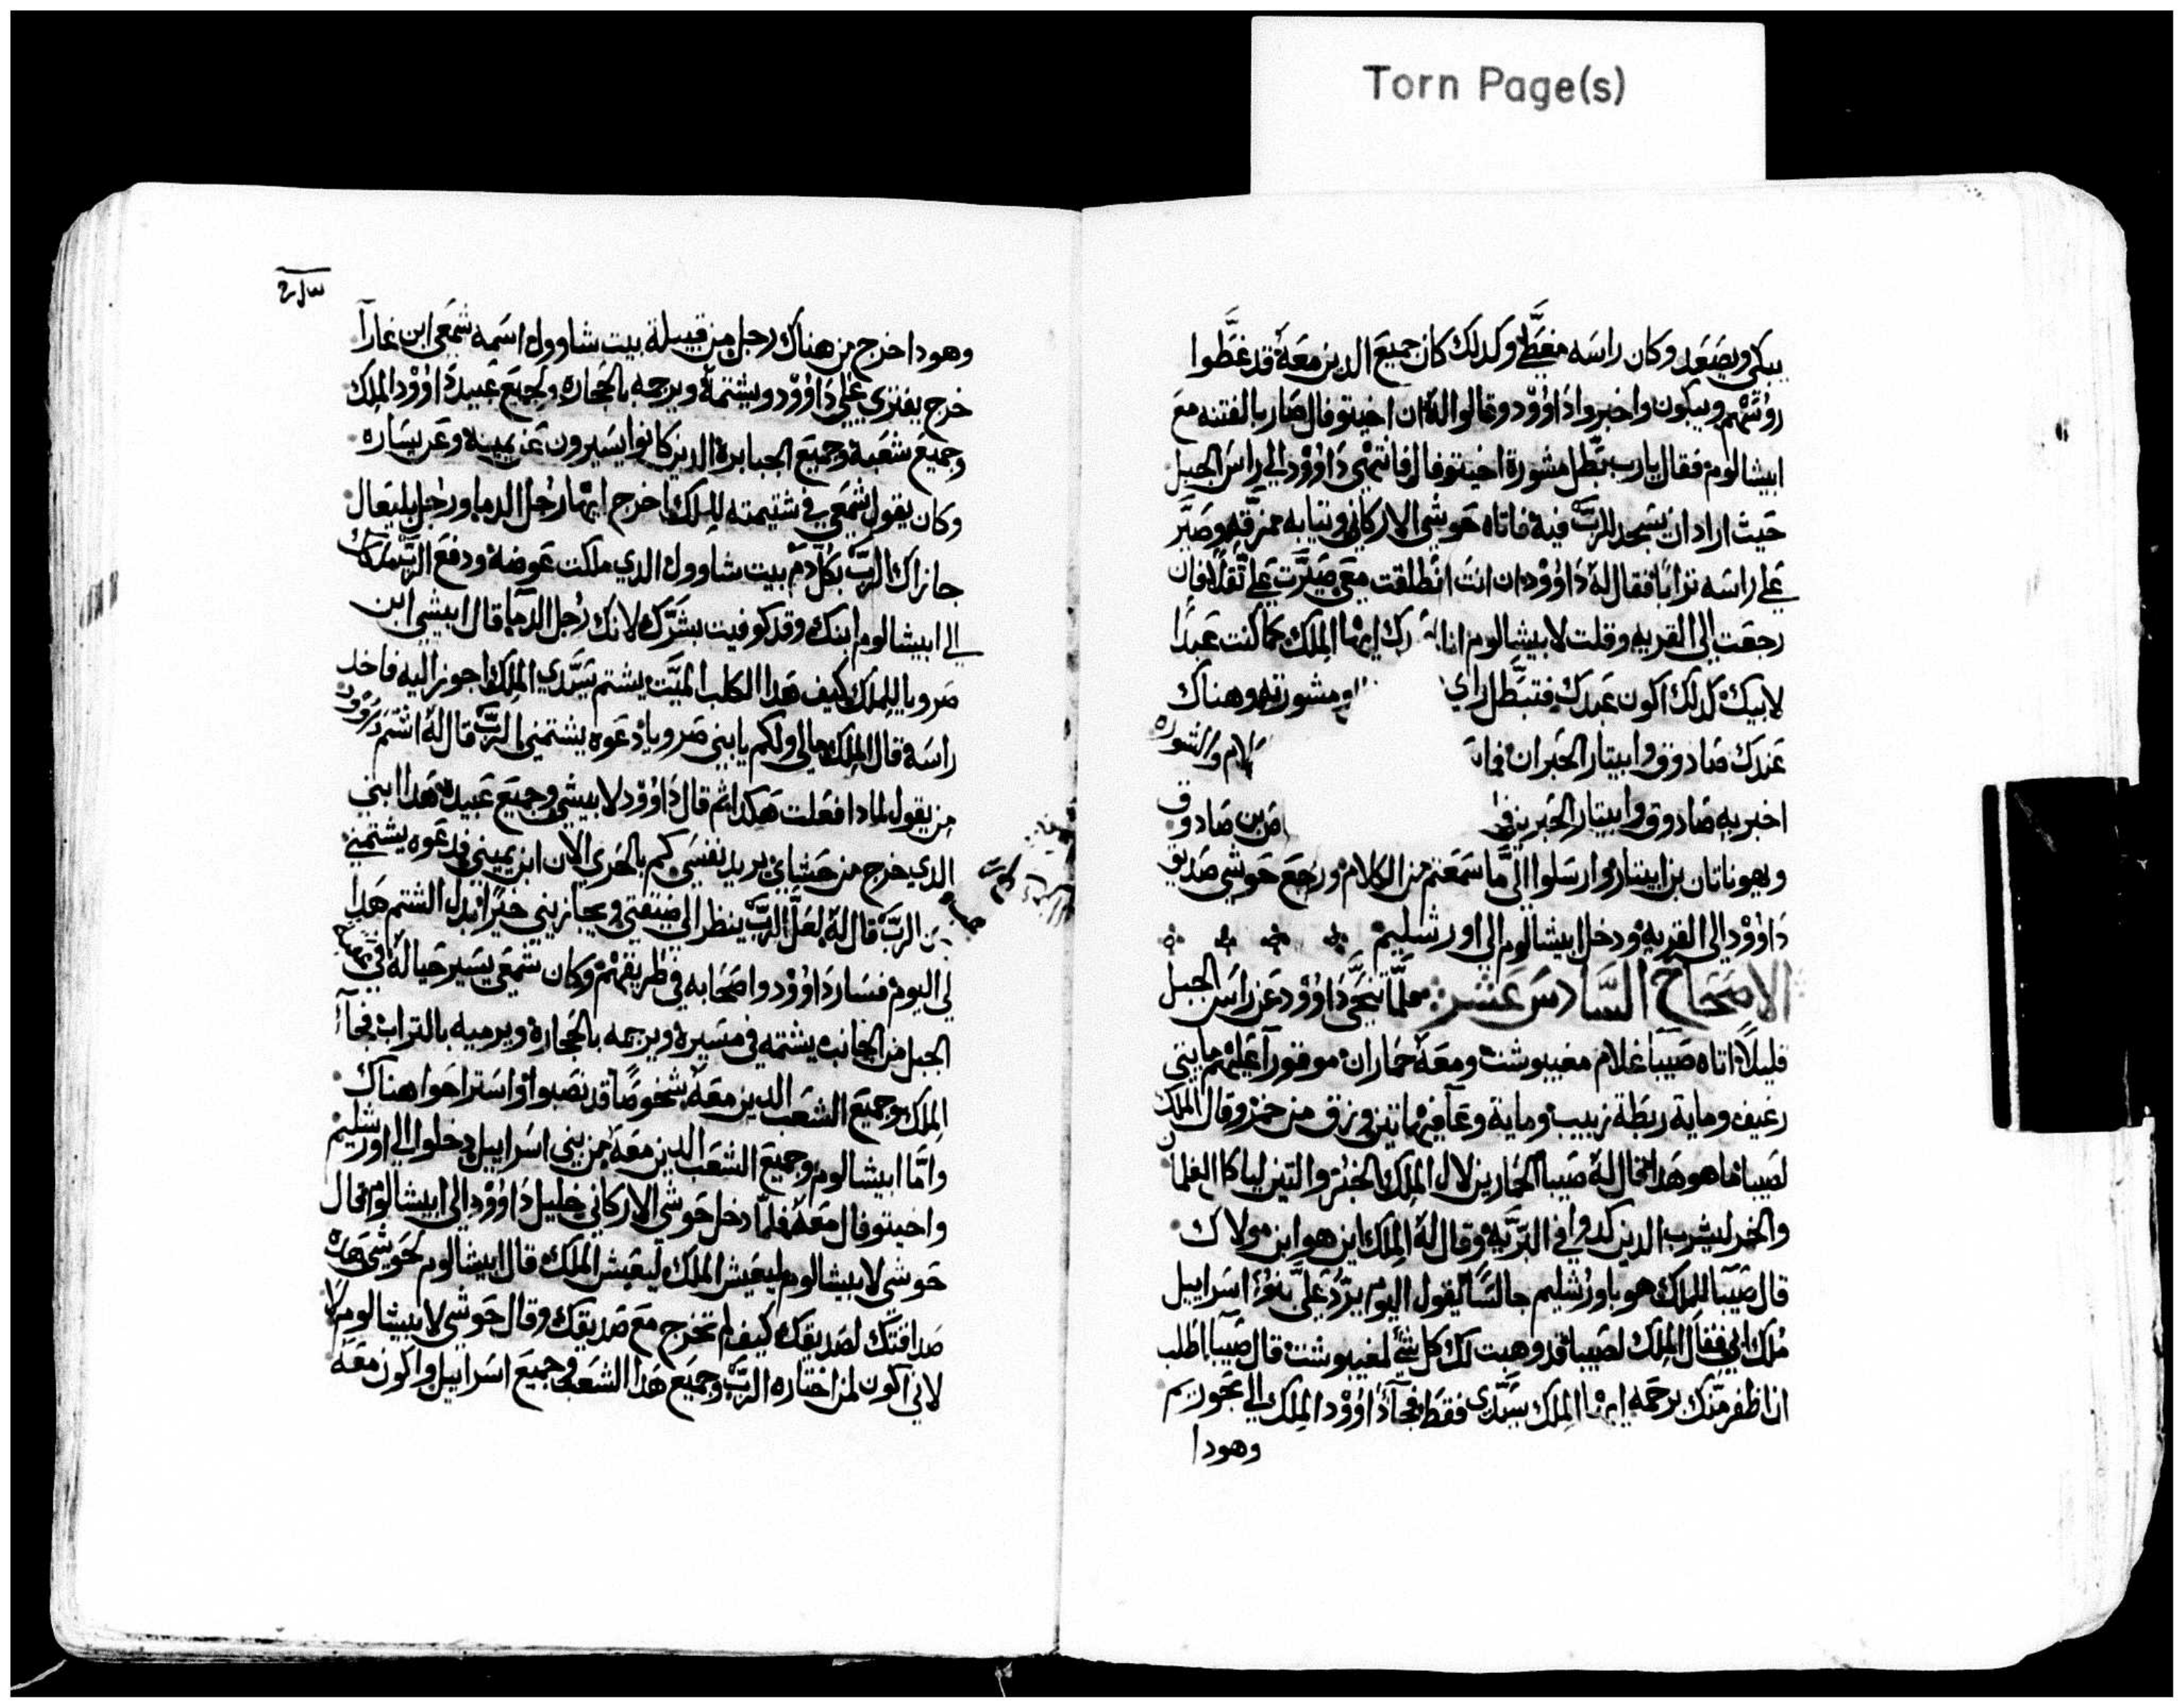 Torn Page(s)
يبكي ويصَعد وكان راسَه مغطَّي وكدلك كان جميعَ الدين معَهُ قد غطَّوا
روُسَهم ويبكون واخبروا دَاوُوْد وقالوا لهُ ان اخيتوفال صَار بالفتنه معَ
ابيشالوم فقال يارب بَطّل مشورة اخيتوفال فانتهي دَاوُوْد الي راسَ الجبل
حَيث اراد ان يسَجد للربّ فيه فاتاه حَوشي الاركاني وثيابه ممزقه وصَيَّر
علي راسَه ترابًا فقال لهُ دَاوُوْد ان انت انطلقت معَي صَيرَّت عَلي ثقلاً فان
رجعَت الي القريه وقلت لابيشالوم انا ايها الملك كما كنت عَبدًا
لابيك كدلك اكون عَبدك فتبَطّل راي ومشورته وهناك
عَندك صَادوق وابيتار الحَبران والمشوره
اخبر به صَادوق وابيتار الحَبرين بن صَادوق
ويهوناتان بن ابيتار وارسَلوا اليَّ ما سَمعَتم من الكلام ورجعَ حَوشي صَديق
دَاوُوْد الي القريه ودخل ابيشالوم الي اورشليم
الاصحَاح السَّادسَ عَشر فلمَّا تنحَّي دَاوُوْد عَن راسَ الجبل
قليلاً اتاه صَيبا غلام مغيبوشت ومعَهُ حَماران موقورا عَليهم مايتي
رغيف وماية ربطة زبيب وماية وعَا فيها تين وزق من خمر وقال الملك
لصَيبا ما هو هدا قال لهُ صَيبا الحَمارين لال الملك والخبز والتين لياكل الغلمان
والخمر ليشرب الدين كدوا في البَريّه وقال لهُ الملك اين هو ابن مولاك
قال صَيبا للملك هو باورشليم جالسًا يقول اليوم يردّ عَليَّ بنوا اسَراييل
مُلك ابي فقال الملك لصَيبا قد وهبت لك كل شي لمغيبوشت قال صَيبا اطلب
ان اظفر منك برحَمه ايها الملك سَيّدي فقط فجا دَاوُوْد الملك الي بحَوريم
وهودا
وهودا خرج من هناك رجل من قبيلة بيت شاوول اسَمه شمعَي ابن غارا
خرج يفتري عَلي دَاوُوْد ويشتمهُ ويرجمه بالحَجاره ولجميعَ عَبيد دَاوُوْد الملك
وجميعَ شعَبه وجميعَ الجبابرة الدين كانوا يسَيرون عَن يمينه وعَن يسَاره
وكان يقول شمعَي في شتيمته للملك اخرج ايها رجل الدما ورجل بليعَال
جازاك الربّ بكل دم بيت شاوول الدي ملكت عَوضهُ ودفعَ الربّ ملكك
الي ابيشالوم ابنك وقد كوفيت بشرّك لانك رجل الدما قال ابيشي ابن
صَرويا للملك كيف هدا الكلب الميّت يشتم سَيّدي الملك اجوز اليه فاخد
راسَه وقال الملك مالي ولكم يا بني صَرويا دعَوه يشتمني الربّ قال لهُ اشتم دَاوُوْد
من يقول لمادا فعَلت هكدا ثم قال دَاوُوْد لابيشي وجميعَ عَبيده هدا ابني
الدي خرج من حَشاي يريد نفسَي كم بالحَري الان ابن يميني فدعَوه يشتمني
الربّ قال لهُ لعَلّ الربّ ينظر الي ضيقتي ويجازيني خيرًا بدل الشتم هدا
لي اليوم فسَار دَاوُوْد واصَحَابه في طريقهم وكان شمعَي يسَير حَيالهُ في
الجبل من الجانب يشتمه في مسَيره ويرجمه بالحَجاره ويرميه بالتراب فجا
الملك وجميعَ الشعَب الدين معَهُ شخوصًا قد نصَبوا واسَتراحَوا هناك
وامَّا ابيشالوم وجميعَ الشعَب الدين معَهُ من بني اسَراييل دخلوا الي اورشليم
واخيتوفال معَهُ فلمّا دخل حَوشي الاركاني خليل دَاوُوْد الي ابيشالوم قال
حَوشي لابيشالوم ليعَيش الملك ليعَيش الملك قال ابيشالوم لحَوشي هده
صَداقتك لصَديقك كيف لم تخرج معَ صَديقك وقال حَوشي لابيشالوم لا
لاني اكون لمن اختاره الربّ وجميعَ هدا الشعَب وجميعَ اسَراييل واكون معَه